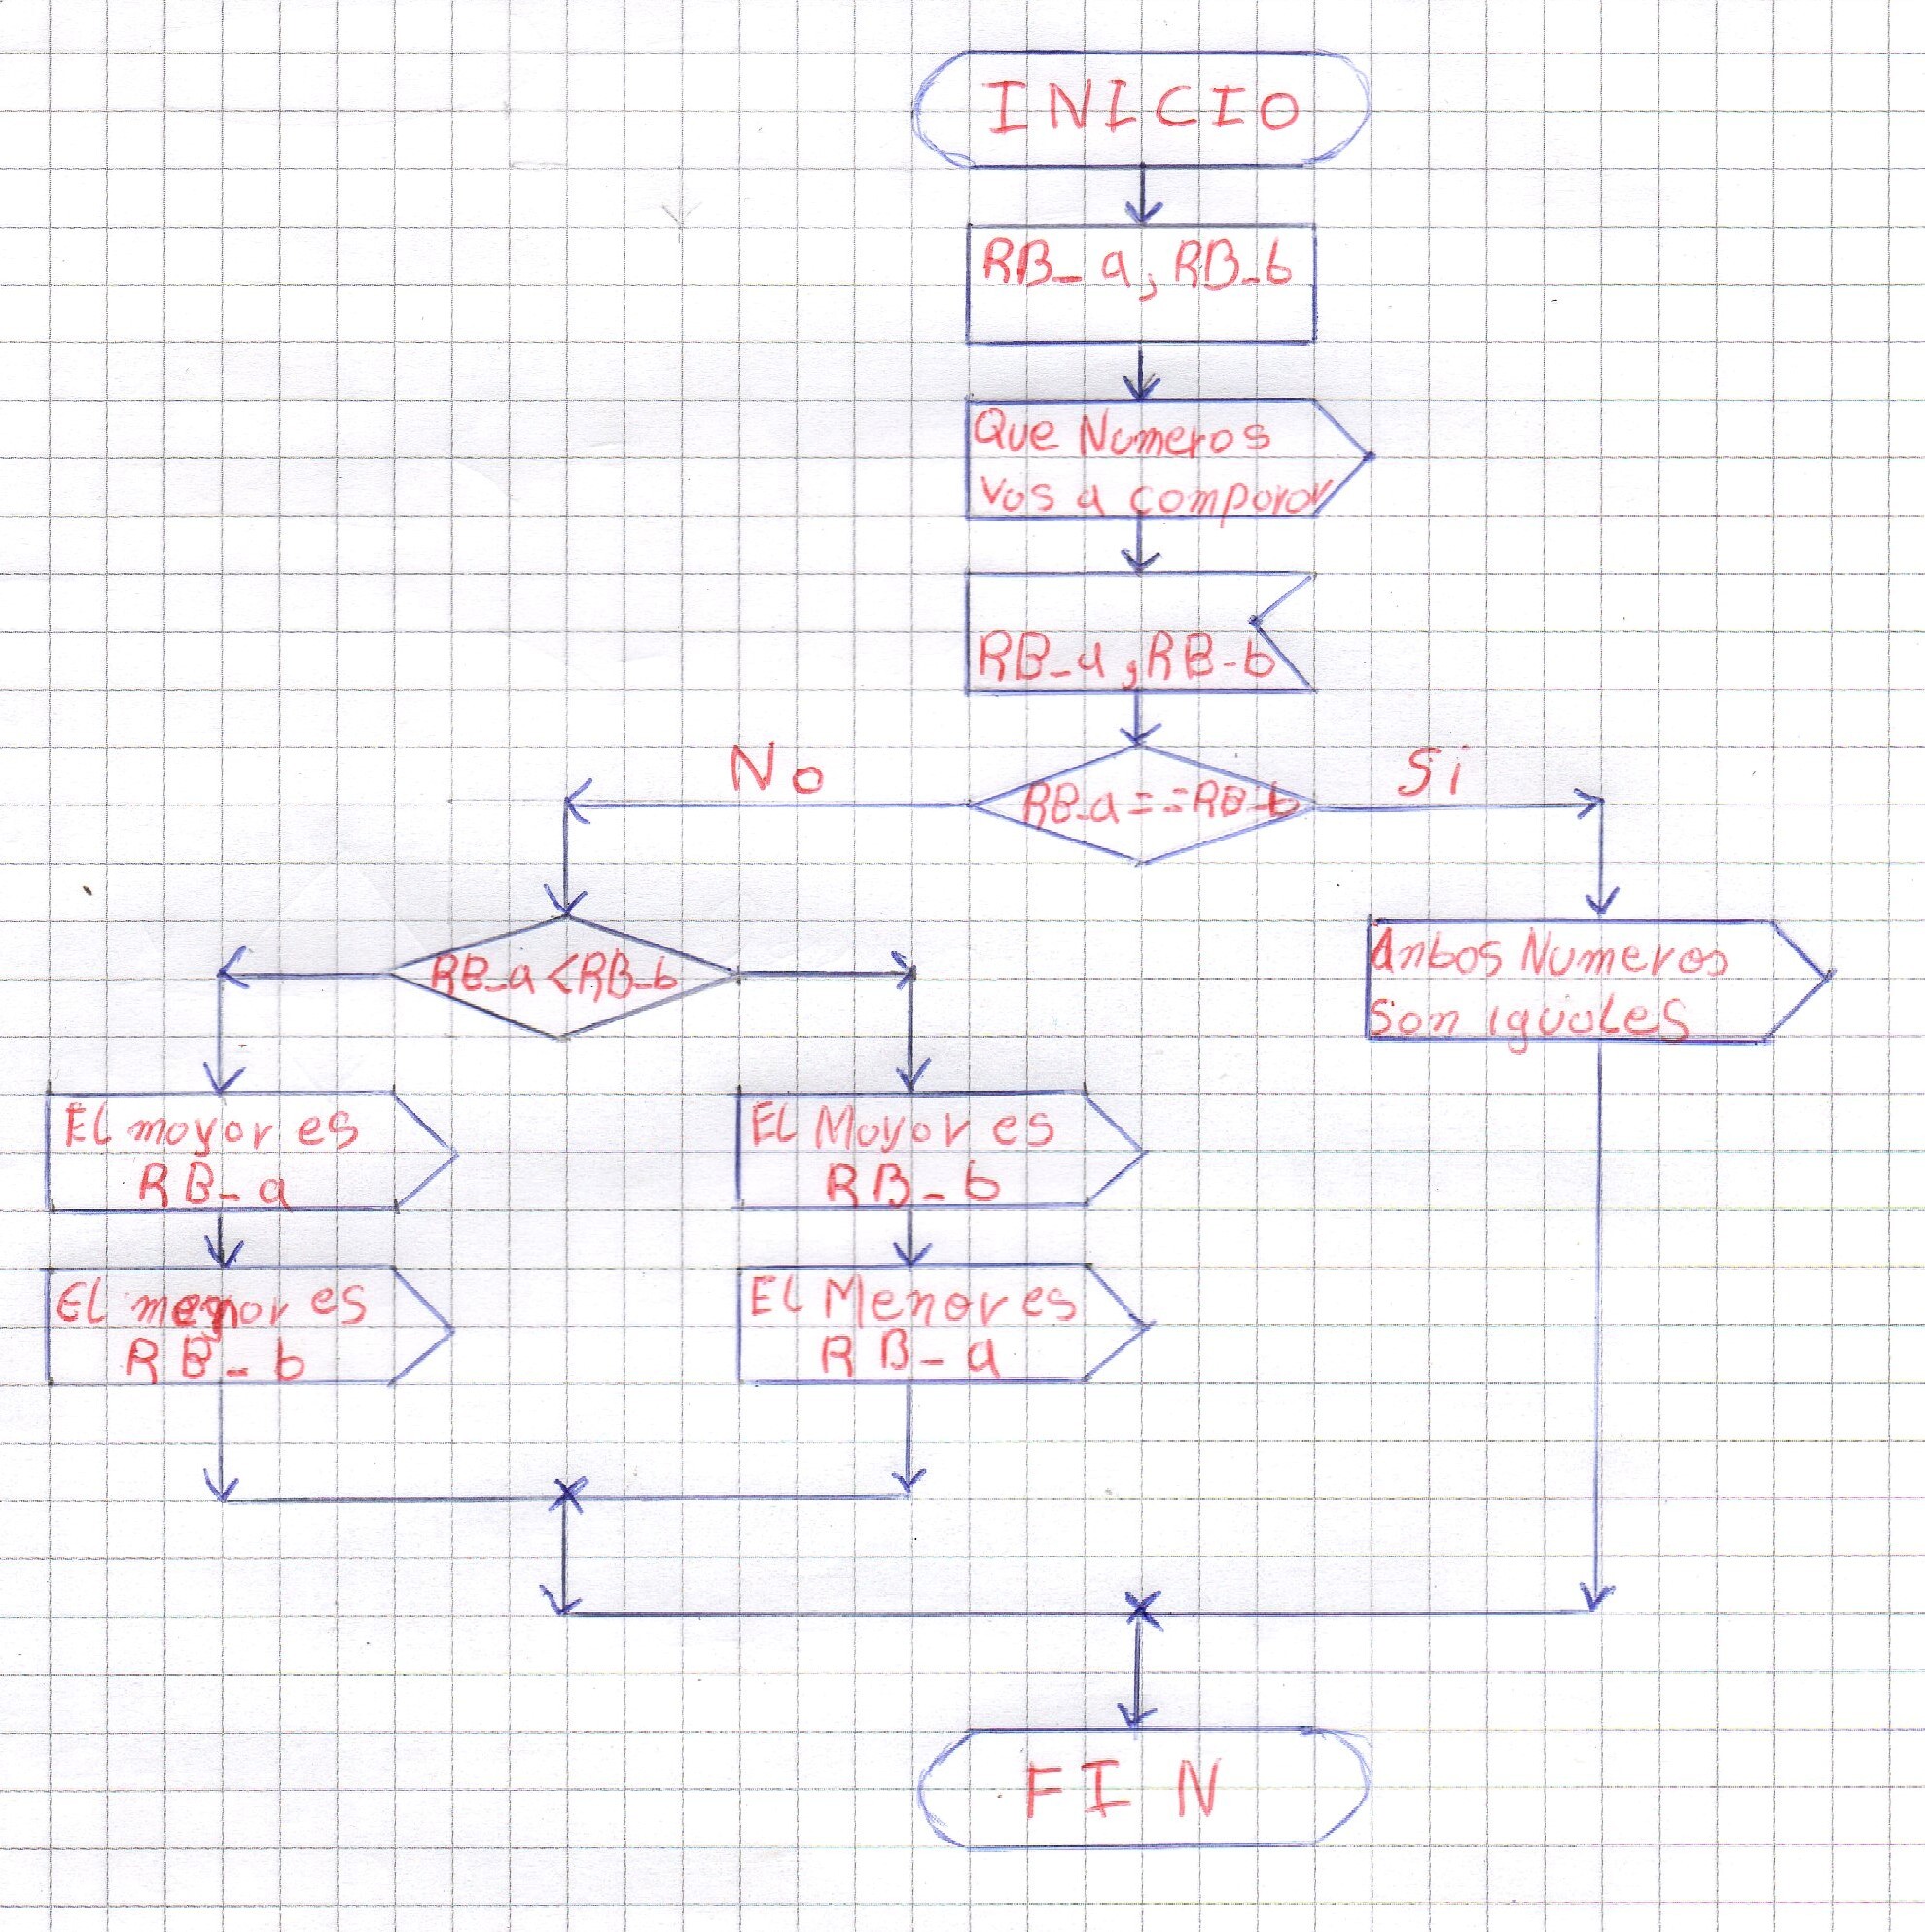 INICIO
RB_a, RB_b
Que Numeros
vas a comparar
RB_a, RB-b
No
Si
RB_a==RB-b
RB_a<RB_b
Anbos Numeros
Son iguales
El mayor es
RB_a
El Mayor es
RB_b
El menor es
RB_b
El Menor es
RB_a
FIN